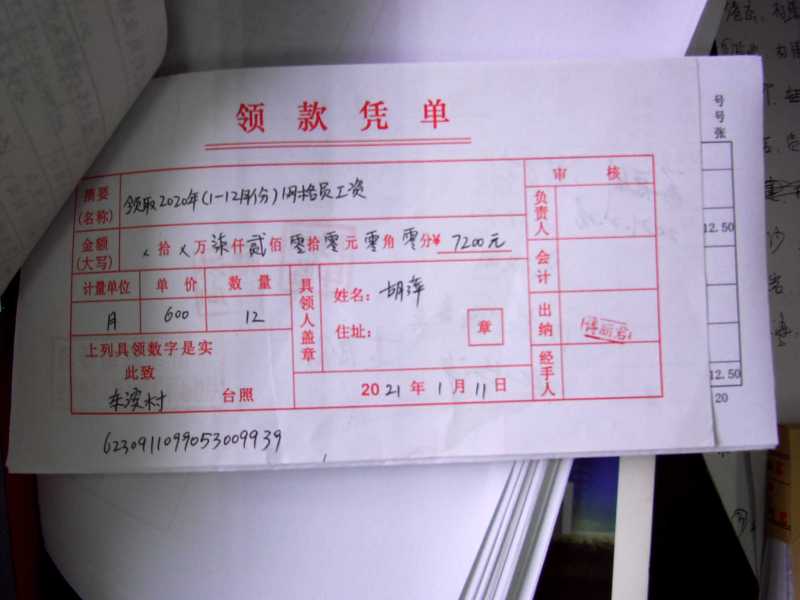 领款凭单
摘要(名称) 领取2020年(1-12月份)网格员工资
审核
负责人
金额(大写) x拾x万柒仟贰佰零拾零元零角零分¥ 7200元
会计
计量单位 单价 数量
月 600 12
具领人盖章
姓名: 胡萍
住址: 章
出纳
上列具领数字是实
此致
台照
2021年1月11日
经手人
6230911099053009939
号
号
张
12.50
12.50
20